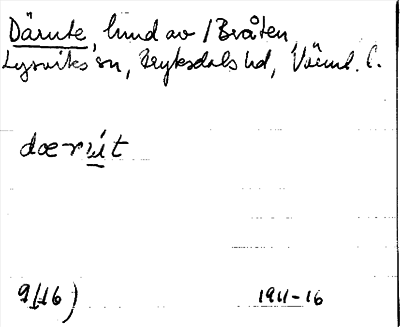 Därute, hund av / Bråten,
Lysviks sn, Fryksdals hd, Värml. l.
dærut
9/16)
1911-16